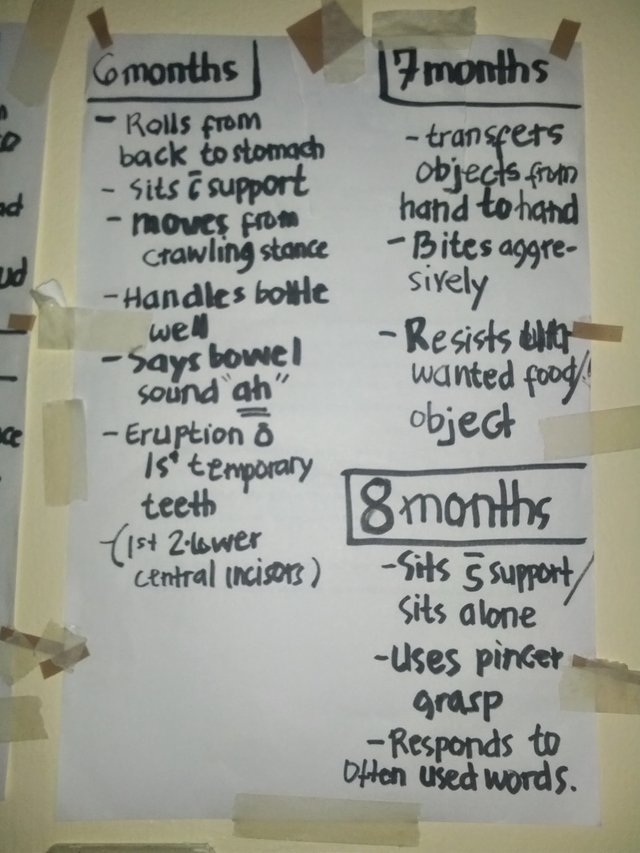 6 months
- Rolls from
back to stomach
- Sits c̄ support
- moves from
crawling stance
- Handles bottle
well
- Says bowel
sound "ah"
- Eruption ō
1st temporary
teeth
- (1st 2 lower
central incisors)
7 months
- transfers
objects from
hand to hand
- Bites aggre-
sively
- Resists un
wanted food/
object
8 months
- Sits s̄ support/
sits alone
- Uses pincer
grasp
- Responds to
often used words.